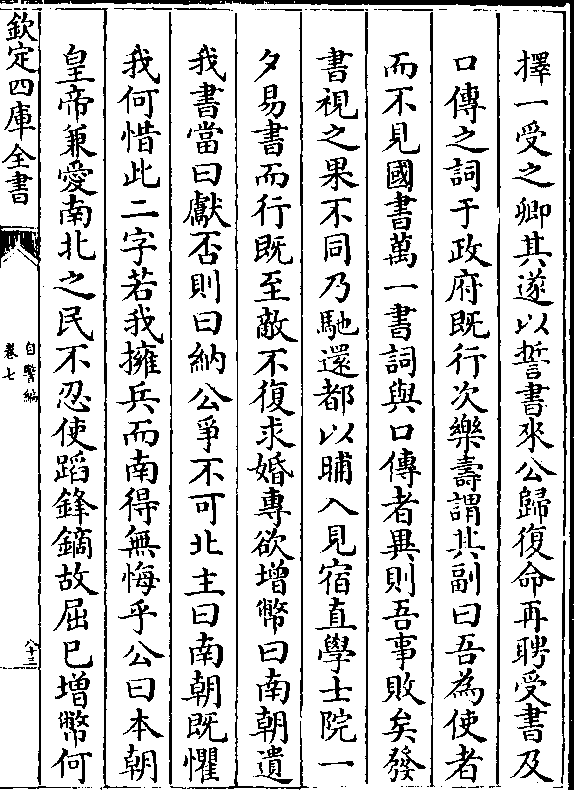 擇一受之卿其遂以誓書來公歸復命再聘受書及
口傳之詞于政府既行次樂壽謂其副曰吾為使者
而不見國書萬一書詞與口傳者異則吾事敗矣發
書視之果不同乃馳還都以晡入見宿直學士院一
夕易書而行既至敵不復求婚專欲增幣曰南朝遺
我書當曰獻否則曰納公爭不可北主曰南朝既懼
我何惜此二字若我擁兵而南得無悔乎公曰本朝
皇帝兼愛南北之民不忍使蹈鋒鏑故屈已增幣何
欽定四庫全書
自警編
卷七
八十三